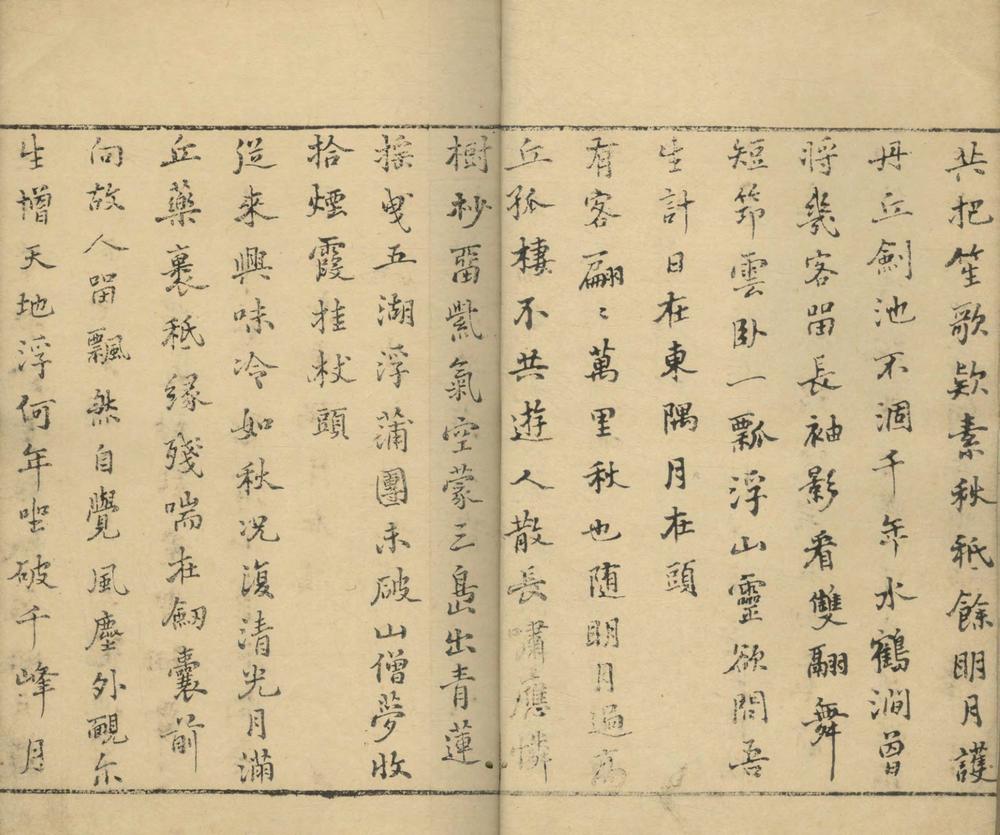 共把笙歌欵素秋秪餘明月護
丹丘劍池不涸千年水鶴澗曾
將幾客畱長袖影看雙翮舞
短筇雲臥一瓢浮山靈欲問吾
生計日在東隅月在頭
有客翩〻萬里秋也随明月過
丘孤棲不共遊人散長嘯應憐
樹杪畱紫氣空蒙三島出青蓮
搖曳五湖浮蒲團未破山僧夢收
拾煙霞挂杖頭
從來興味冷如秋况復清光月滿
丘藥裹秪緣殘喘在劒囊前
向故人畱飄然自覺風塵外靦尓
生憎天地浮何年坐破千峰月